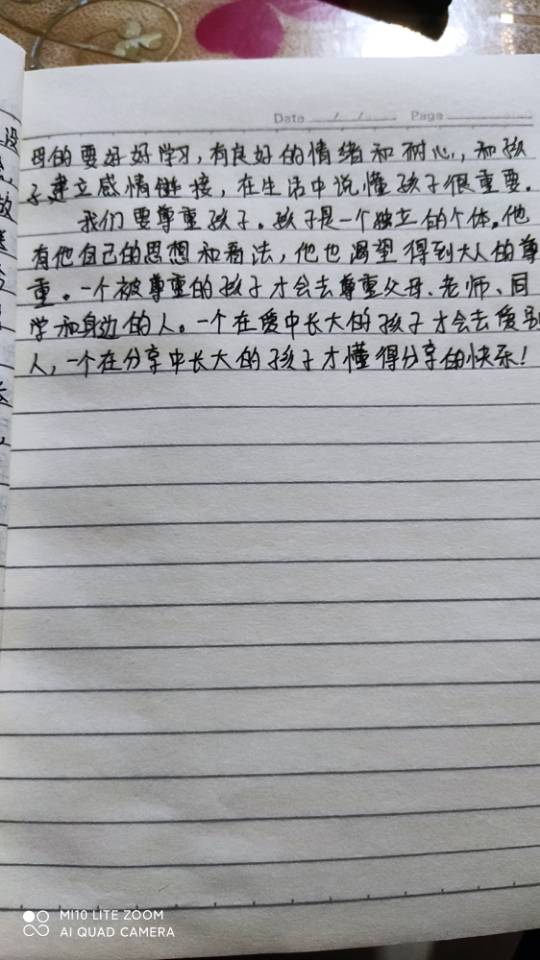 Date / / Page
母的要好好学习,有良好的情绪和耐心,和孩
子建立感情链接,在生活中说懂孩子很重要.
我们要尊重孩子。孩子是一个独立的个体。他
有他自己的思想和看法,他也渴望得到大人的尊
重。一个被尊重的孩子才会去尊重父母、老师、同
学和身边的人。一个在爱中长大的孩子才会去爱别
人,一个在分享中长大的孩子才懂得分享的快乐!
MI10 LITE ZOOM
AI QUAD CAMERA